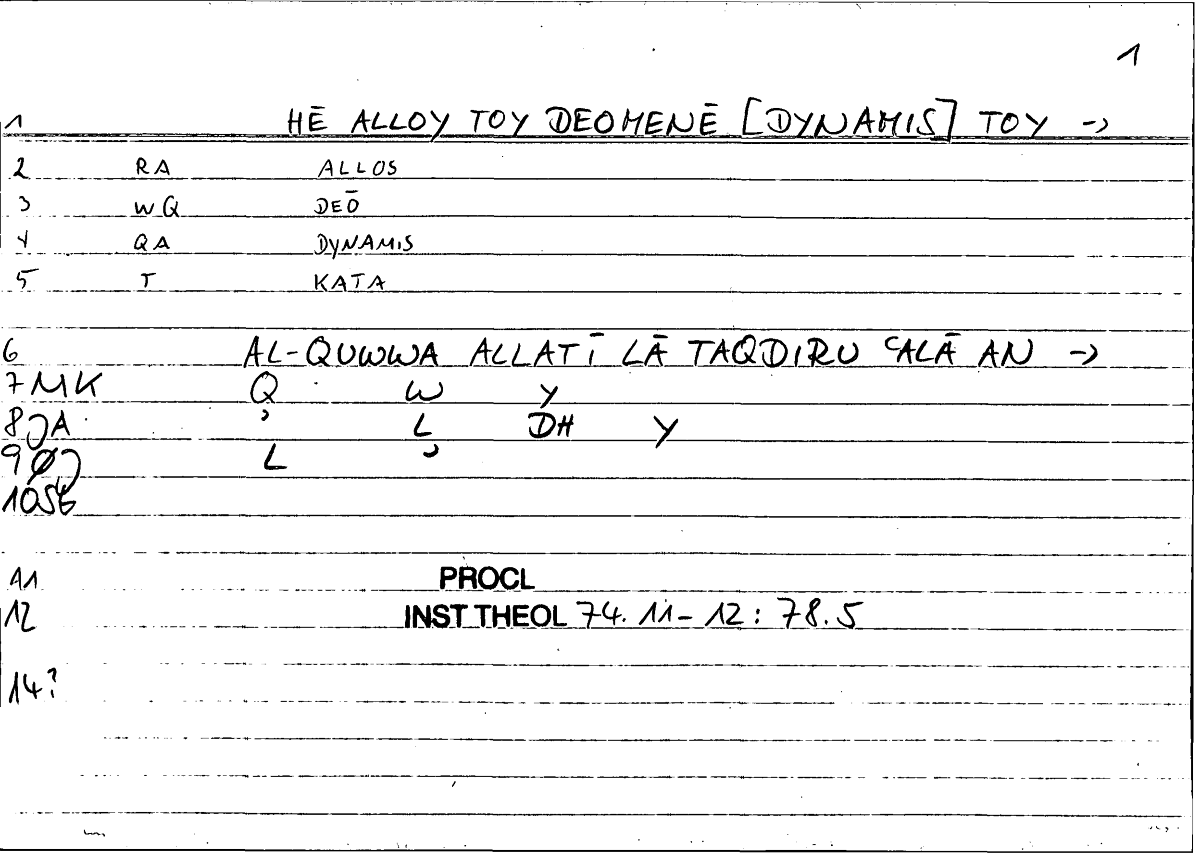 1
1 HĒ ALLOY TOY DEOMENĒ [DYNAMIS] TOY →
2 RA ALLOS
3 WQ DEŌ
4 QA DYNAMIS
5 T KATA
6 AL-QUWWA ALLATĪ LĀ TAQDIRU ʿALĀ AN →
7 MK Q W Y
8 JA ʾ L DH Y
9 L ʾ
10
11 PROCL
12 INST THEOL 74. 11-12 : 78.5
14?